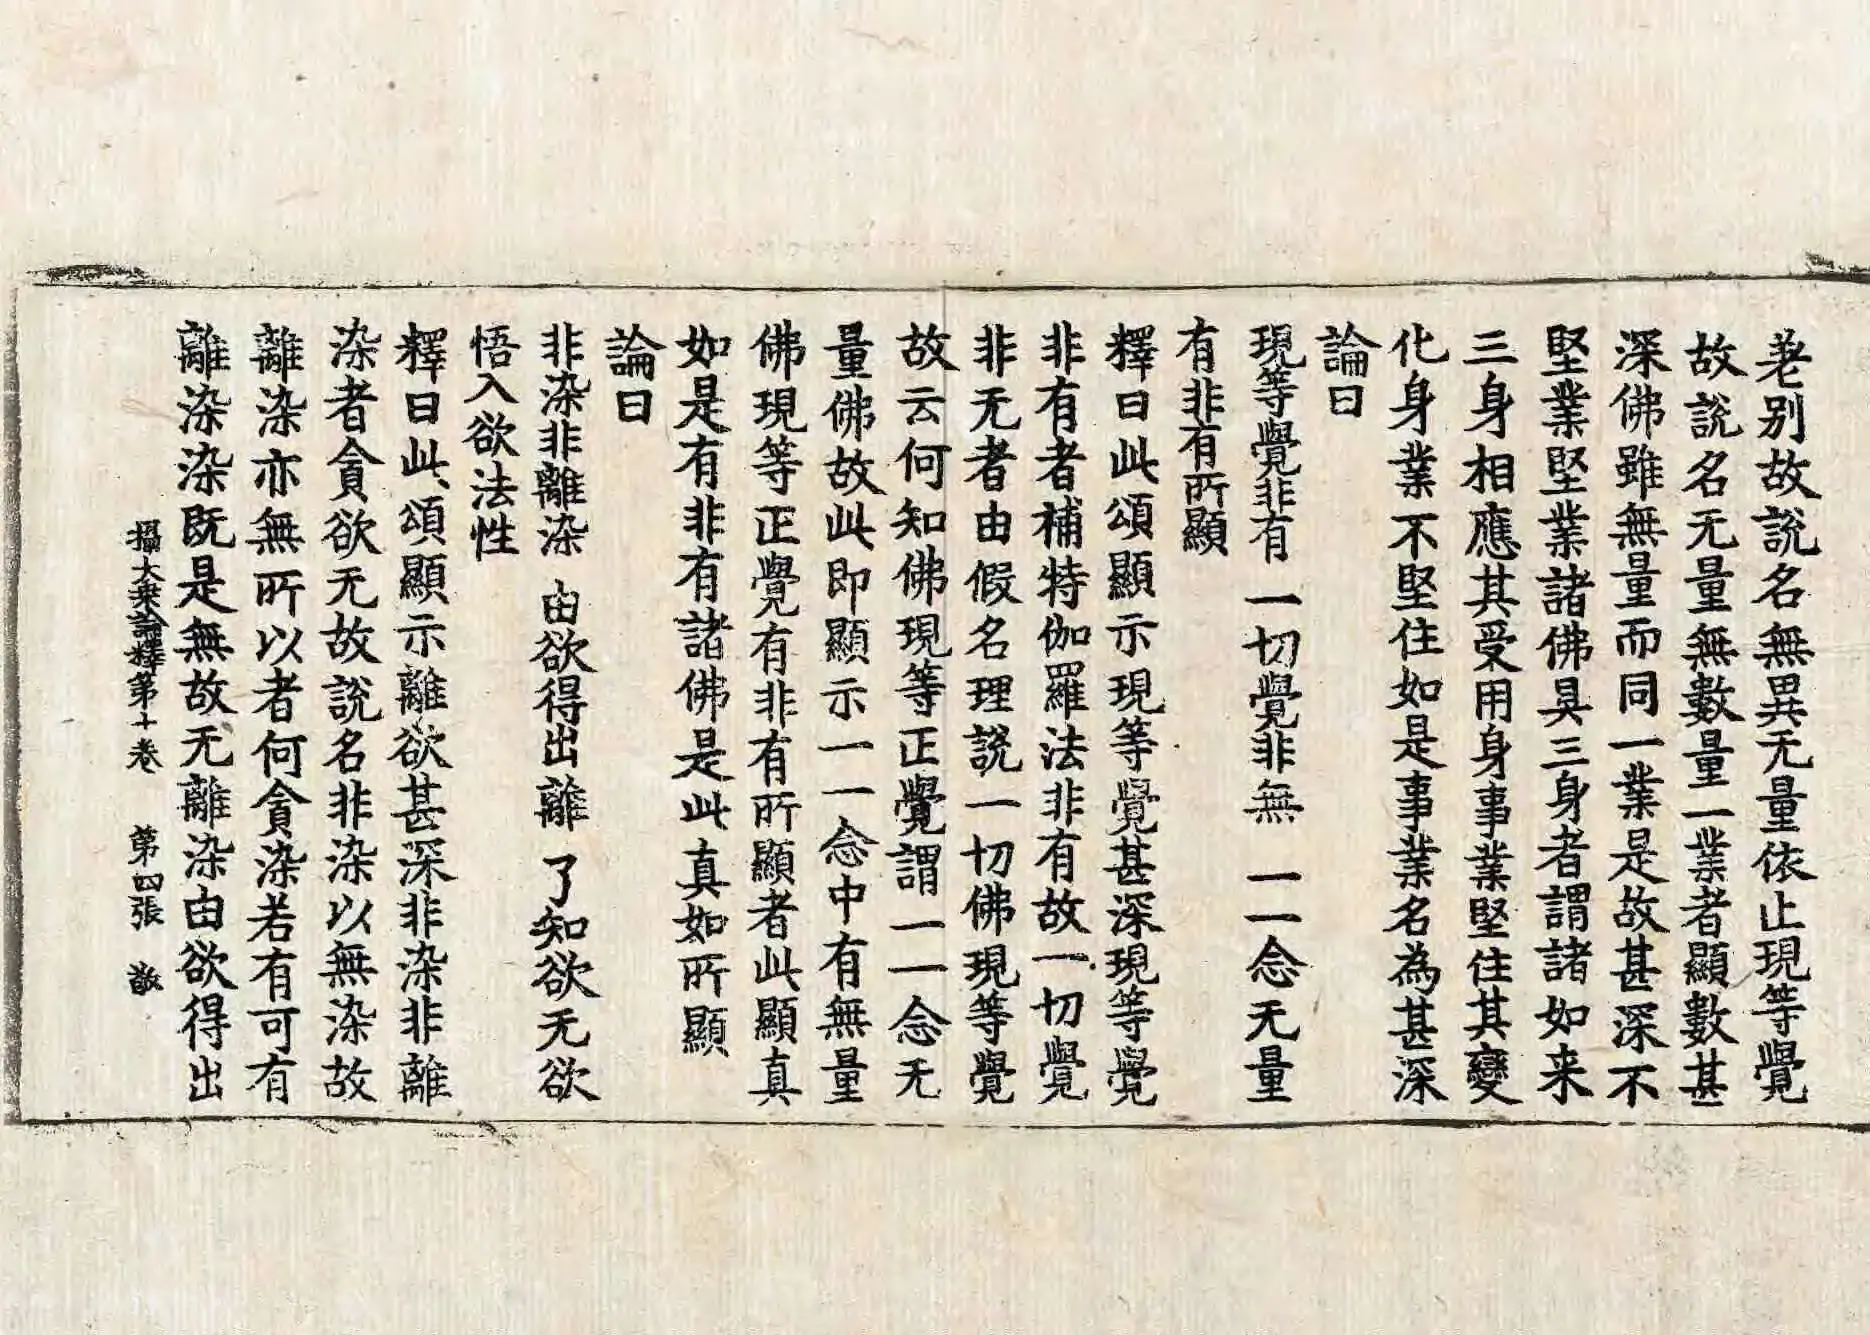 差別故說名無異无量依止現等覺
故說名无量無數量一業者顯數甚
深佛雖無量而同一業是故甚深不
堅業堅業諸佛具三身者謂諸如来
三身相應其受用身事業堅住其變
化身業不堅住如是事業名為甚深
論曰
現等覺非有 一切覺非無 一一念无量
有非有所顯
釋曰此頌顯示現等覺甚深現等覺
非有者補特伽羅法非有故一切覺
非无者由假名理說一切佛現等覺
故云何知佛現等正覺謂一一念无
量佛故此即顯示一一念中有無量
佛現等正覺有非有所顯者此顯真
如是有非有諸佛是此真如所顯
論曰
非染非離染 由欲得出離 了知欲无欲
悟入欲法性
釋曰此頌顯示離欲甚深非染非離
染者貪欲无故說名非染以無染故
離染亦無所以者何貪染若有可有
離染染既是無故无離染由欲得出
攝大乗論釋第十卷 第四張